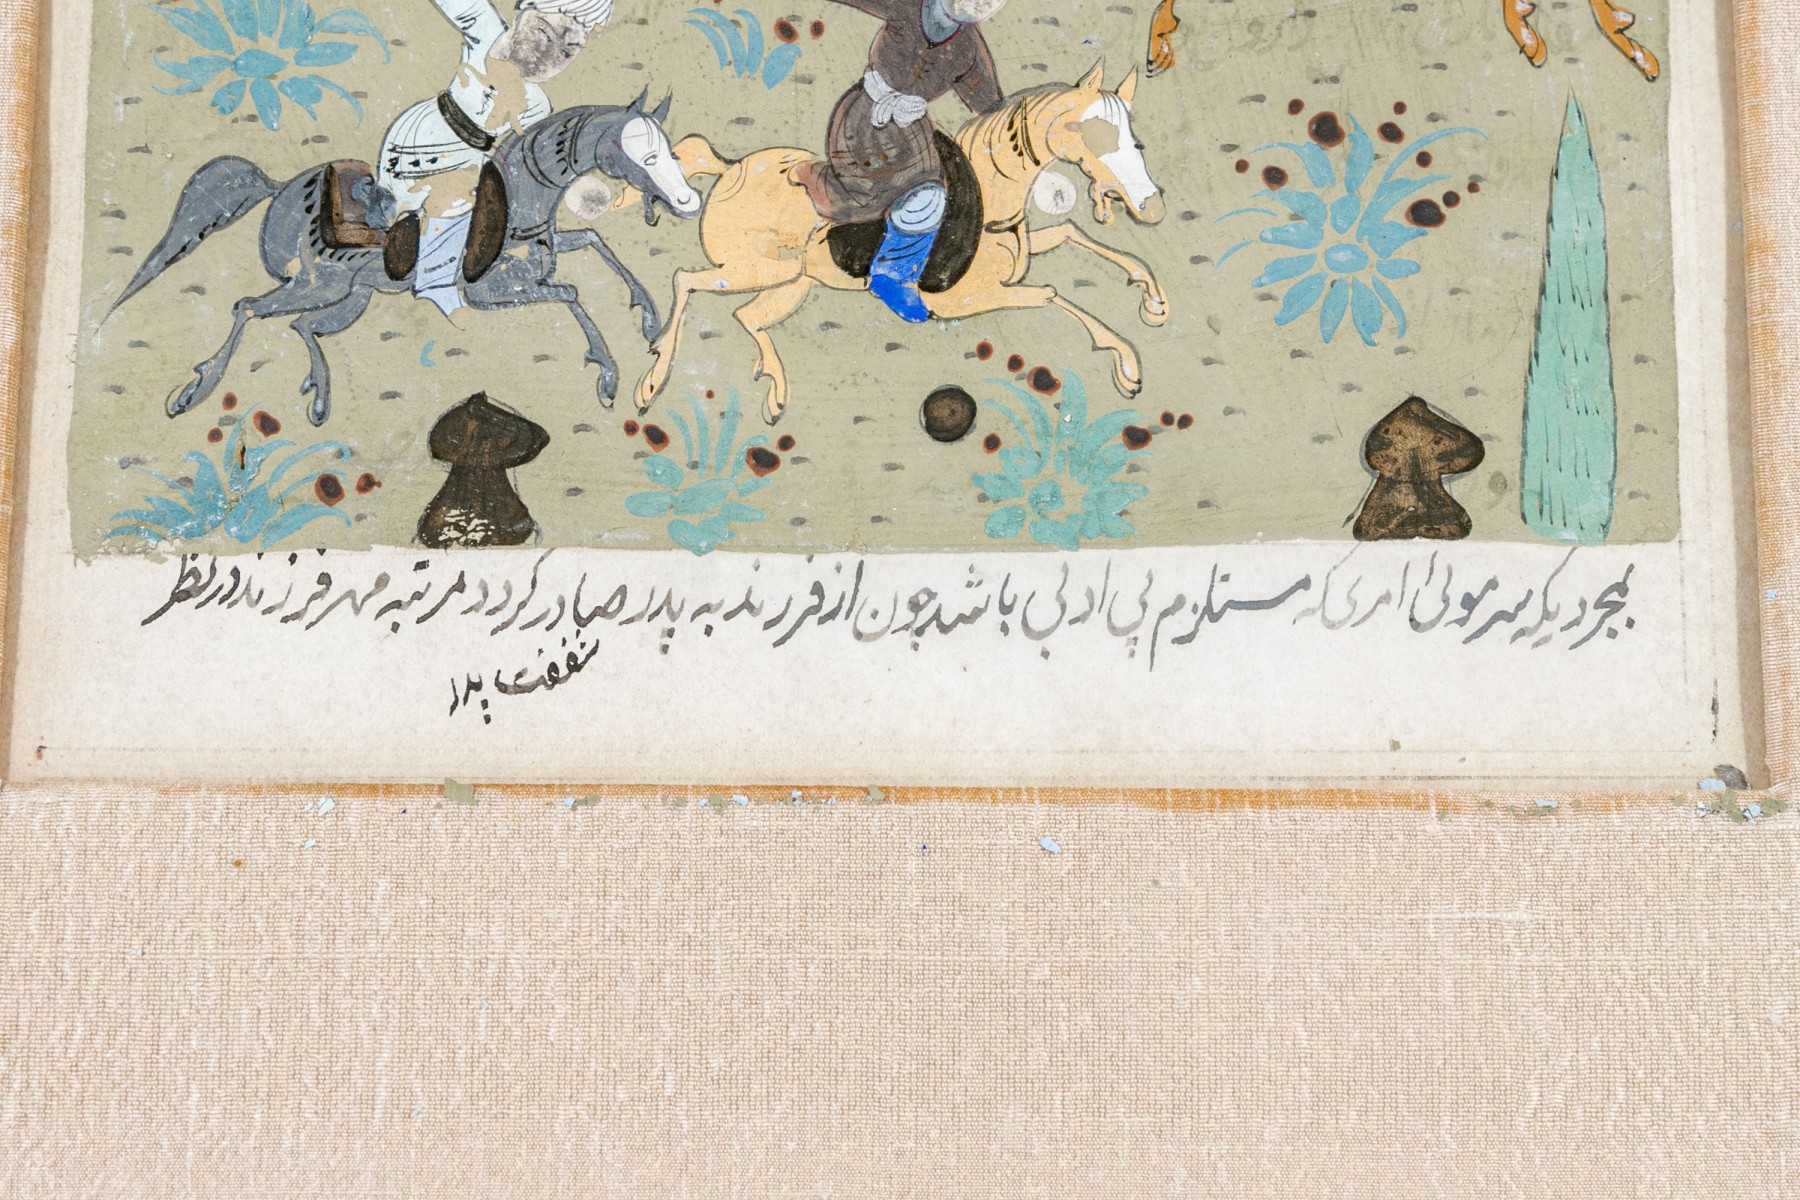 بمجرد یکسر موئی امری که مستلزم بی ادبی باشد چون از فرزند به پدر صادر کردد مرتبه مهر فرزند در نظر
شفقت پدر